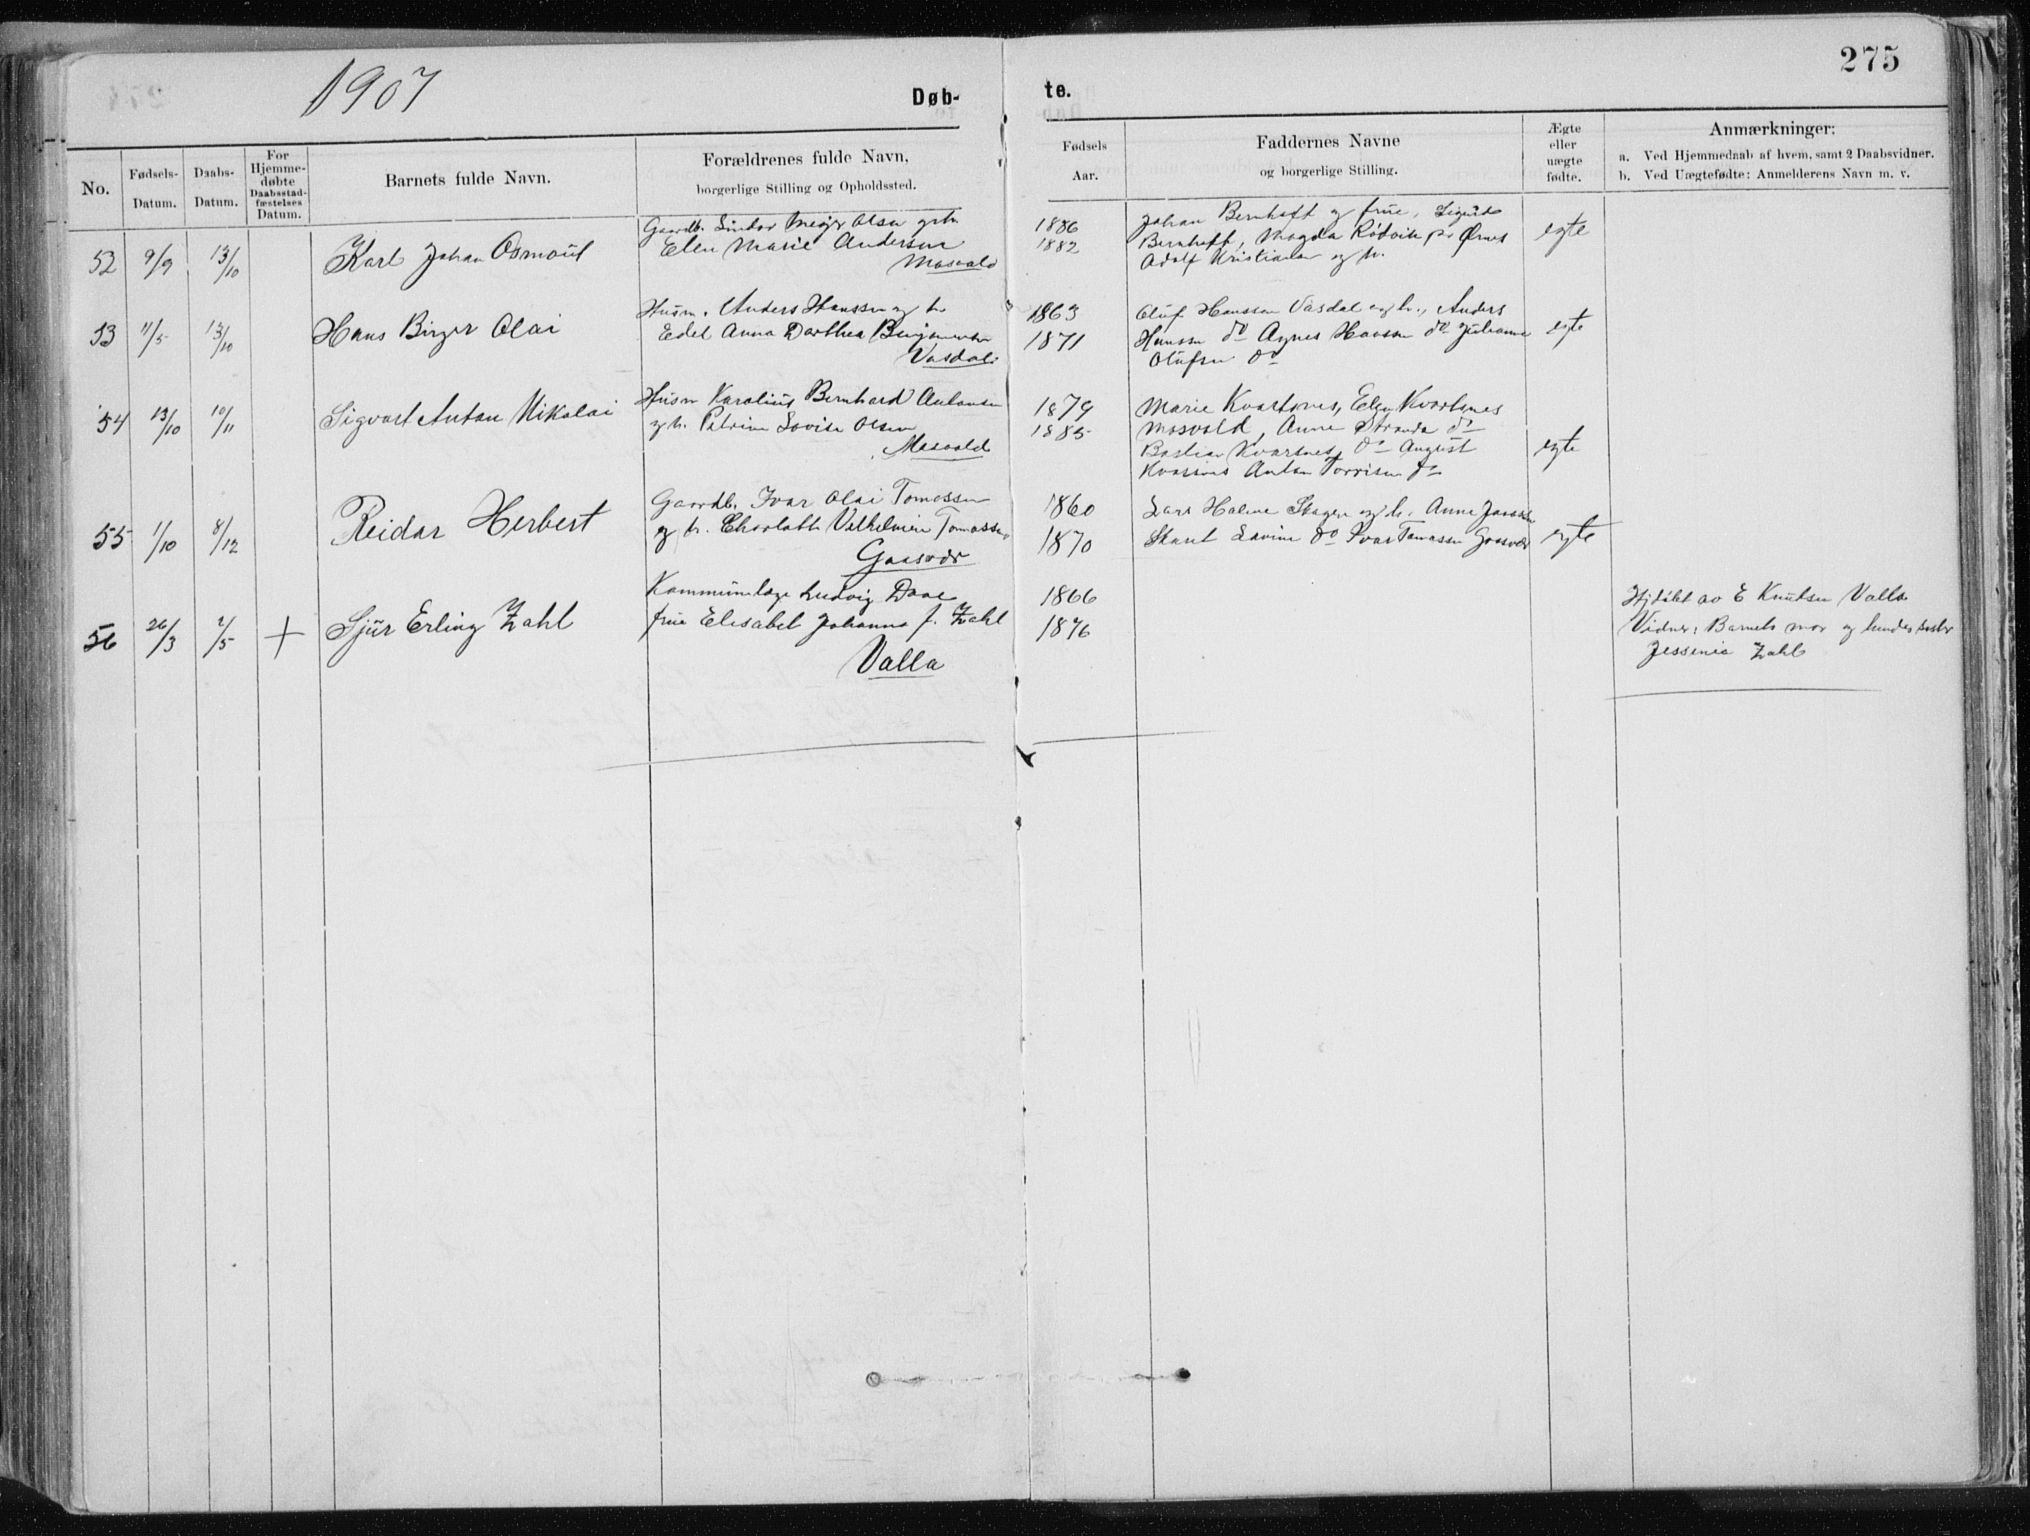 275
1907
Døb-
te.
No.
Fødsels-
Datum.
Daabs-
Datum.
For
Hjemme-
døbte
Daabsstad-
fæstelses
Datum.
Barnets fulde Navn.
Forældrenes fulde Navn,
borgerlige Stilling og Opholdssted.
Fødsels
Aar.
Faddernes Navne
og borgerlige Stilling.
Ægte
eller
uægte
fødte.
Anmærkninger:
a. Ved Hjemmedaab af hvem, samt 2 Daabsvidner.
b. Ved Uægtefødte: Anmelderens Navn m. v.
52 9/9 13/10 Karl Johan Osmont
Gaardb. Sindor Meyer Olsen
Elen Marie Andersen
Mosvold
1886
1882
Johan Bernhoft og frue, Sigurd
Bernhoft, Magda Rödvik pr Ørnes
Adolf Kristiansen og h.
egte
53 11/5 13/10 Hans Birger Olai
Husm. Anders Hanssen og h.
Edel Anna Dorthea Benjaminsen
Vasdal
1863
1871
Oluf Hanssen Vasdal og h., Anders
Hanssen do Agnes Hanssen do Julianna
Olufsen do
egte
54 13/10 10/11 Sigvart Anton Nikolai
Husm Karolius Bernhard Antonsen
og h. Petrine Lovise Olsen
Mosvold
1879
1885
Marie Kvarsnes, Elen Kvarsnes
Mosvold, Anne Stranda do
Bastian Kvarsnes, do August
Kvarsnes Anton Torrisen do
egte
55 1/10 8/12 Reidar Herbert
Gaardb. Ivar Olai Tomassen
og h. Charlotte Vilhelmine Tomassen
Gaasvær
1860
1870
Lars Holme Skagen og h. Anne
Lavine do Ivar Tomassen Gaasvær
egte
56 26/3 2/5 + Sjur Erling Zahl
Kommunelæge Ludvig Daae
frue Elisabet Johanna f. Zahl
Valla
1866
1876
Hjdøbt av E Knutsen Valla
Vidner: Barnets mor og hendes søster
Jessenia Zahl